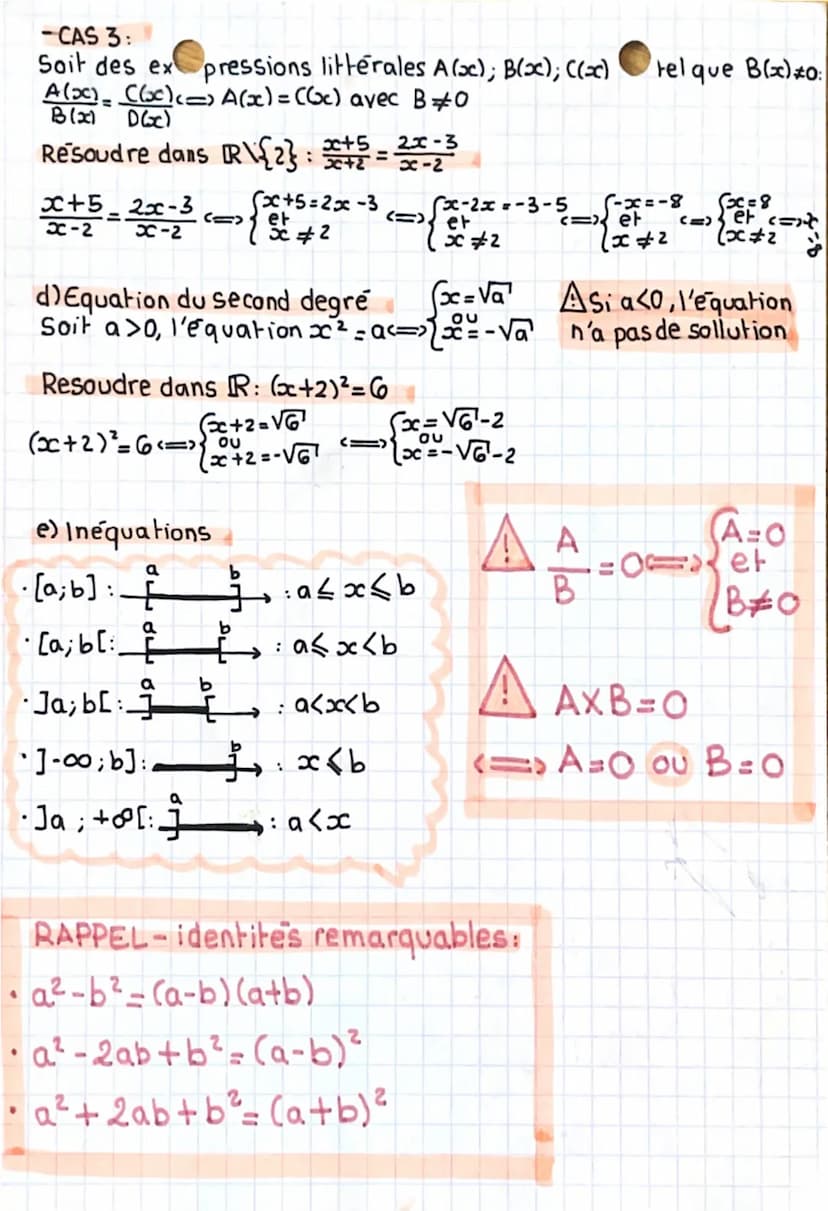 -CAS 3:
Soit des expressions littérales A(x); B(x); C(x) tel que B(x)≠0:
A(x)/B(x) = C(x)/D(x) <=> A(x) = C(x) avec B≠0
Résoudre dans ℝ\{2}: x+5/x+2 = 2x-3/x-2
x+5/x-2 = 2x-3/x-2 <=> {x+5=2x-3 et x≠2 <=> {x-2x=-3-5 et x≠2 <=> {-x=-8 et x≠2 <=> {x=8 et x≠2 <=>
d) Equation du second degré
Soit a>0, l'équation x²=a <=> {x=√a ou x=-√a
⚠ Si a<0, l'équation
n'a pas de sollution
Resoudre dans ℝ: (x+2)²=6
(x+2)²=6 <=> {x+2=√6 ou x+2=-√6 <=> {x=√6-2 ou x=-√6-2
e) Inéquations
· [a;b] : a [ b ] : a⩽x⩽b
· [a;b[ : a [ b [ : a⩽x<b
· ]a;b[ : a ] b [ : a<x<b
· ]-∞;b] : b ] : x⩽b
· ]a;+∞[ : a ] : a<x
⚠ A/B = 0 <=> {A=0 et B≠0
⚠ A×B=0
<=> A=0 ou B=0
RAPPEL - identités remarquables:
· a²-b²=(a-b)(a+b)
· a²-2ab+b²=(a-b)²
· a²+2ab+b²=(a+b)²